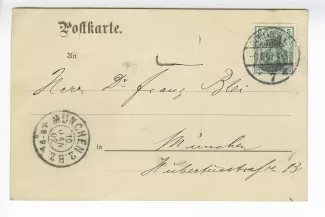 Postkarte.
An
Herrn Dr Franz Blei
in München
Hubertusstraße 13
MÜNCHEN 2
10
JAN
B.Z.
5
7